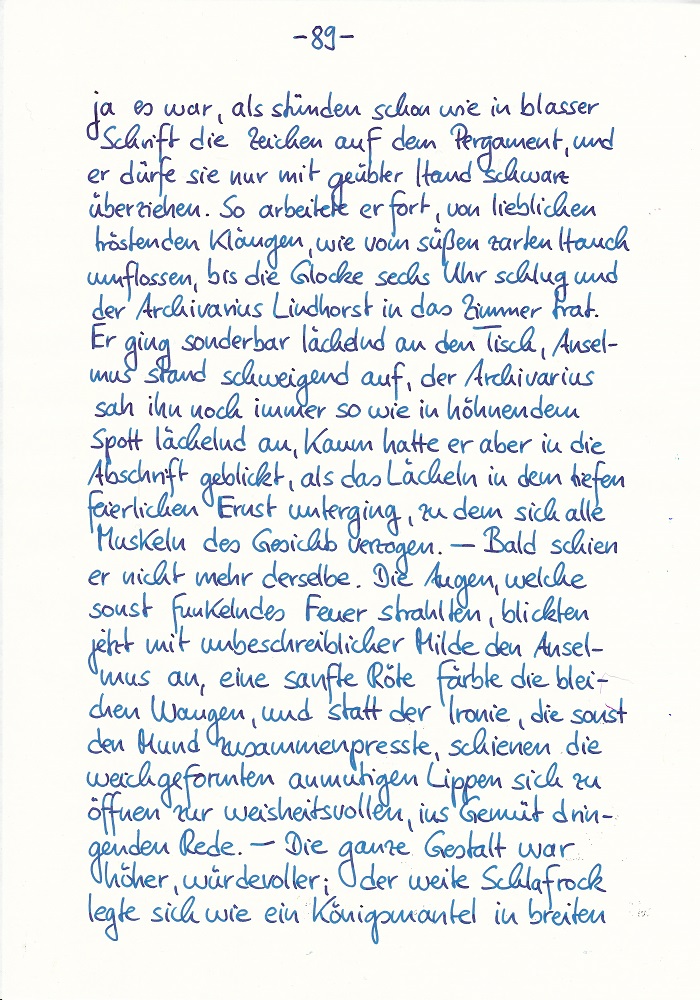 -89-
ja es war, als stünden schon wie in blasser
Schrift die Zeichen auf dem Pergament, und
er dürfe sie nur mit geübter Hand schwarz
überziehen. So arbeitete er fort, von lieblichen
tröstenden Klängen, wie vom süßen zarten Hauch
umflossen, bis die Glocke sechs Uhr schlug und
der Archivarius Lindhorst in das Zimmer trat.
Er ging sonderbar lächelnd an den Tisch, Ansel-
mus stand schweigend auf, der Archivarius
sah ihn noch immer so wie in höhnendem
Spott lächelnd an, Kaum hatte er aber in die
Abschrift geblickt, als das Lächeln in dem tiefen
feierlichen Ernst unterging, zu dem sich alle
Muskeln des Gesichts verzogen. — Bald schien
er nicht mehr derselbe. Die Augen, welche
sonst funkelndes Feuer strahlten, blickten
jetzt mit unbeschreiblicher Milde den Ansel-
mus an, eine sanfte Röte färbte die blei-
chen Wangen, und statt der Ironie, die sonst
den Mund zusammenpresste, schienen die
weichgeformten anmutigen Lippen sich zu
öffnen zur weisheitsvollen, ins Gemüt drin-
genden Rede. — Die ganze Gestalt war
höher, würdevoller; der weite Schlafrock
legte sich wie ein Königsmantel in breiten